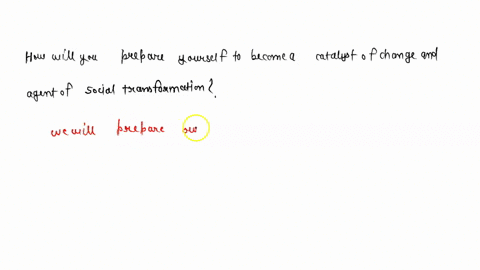 How will you prepare yourself to become a catalyst of change and
agent of social transformation?.
we will prepare our